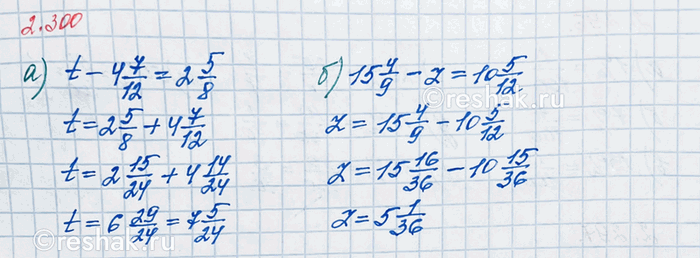 2.300
а) t - 4 7/12 = 2 5/8
t = 2 5/8 + 4 7/12
t = 2 15/24 + 4 14/24
t = 6 29/24 = 7 5/24
б) 15 4/9 - z = 10 5/12
z = 15 4/9 - 10 5/12
z = 15 16/36 - 10 15/36
z = 5 1/36
reshak.ru
reshak.ru